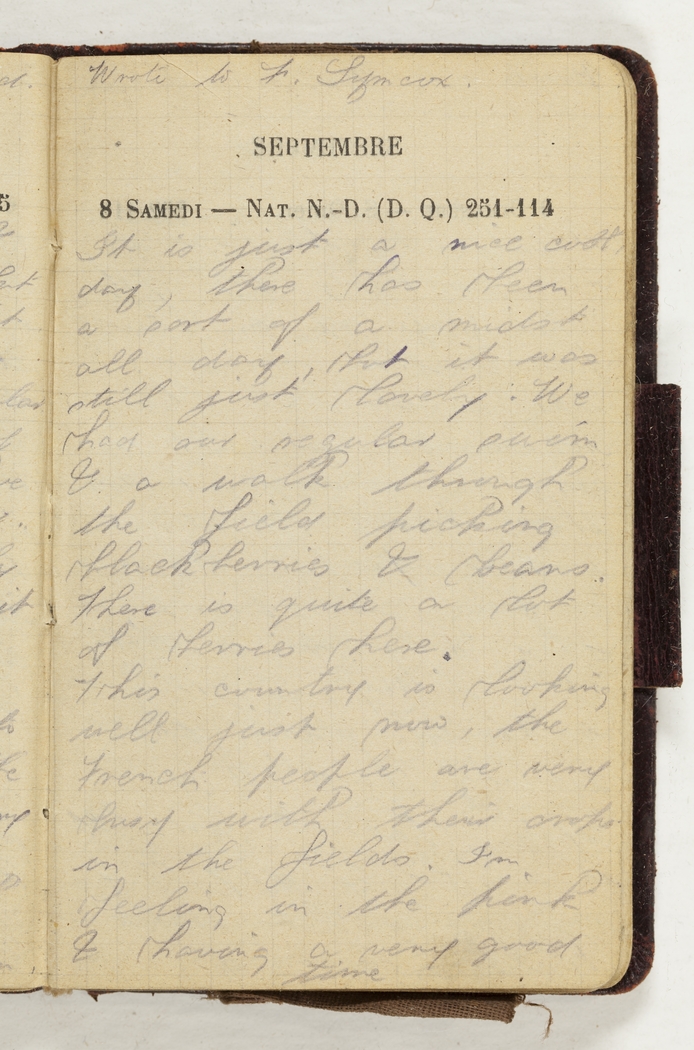 Wrote to F. Symcox.
SEPTEMBRE
8 SAMEDI — NAT. N.-D. (D. Q.) 251-114
It is just a nice cool
day, there has been
a sort of a midst
all day, but it was
still just lovely. We
had our regular swim
& a walk through
the field picking
blackberries & beans.
There is quite a lot
of berries here.
This country is looking
well just now, the
French people are very
busy with their crops
in the fields. I'm
feeling in the pink
& having a very good
time